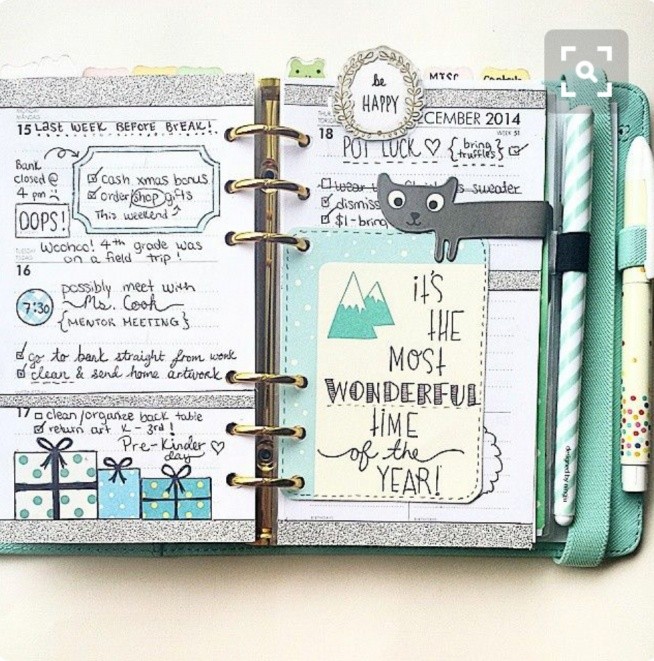 15 LAST WEEK BEFORE BREAK!
Bank
closed @
4 pm
OOPS!
cash xmas bonus
order shop gifts
This weekend
Woohoo! 4th grade was
on a field trip!
16
7:30
possibly meet with
Ms. Cook
{MENTOR MEETING}
go to bank straight from work
clean & send home artwork
17 clean/organize back table
return art K - 3rd!
Pre-Kinder
day
be
HAPPY
MISC
CEMBER 2014
WEEK 51
18
POT LUCK {bring
truffles}
wear
sweater
dismiss
$1-bring
it's
tHE
MOSt
WONDERFUL
tiME
of the
YEAR!